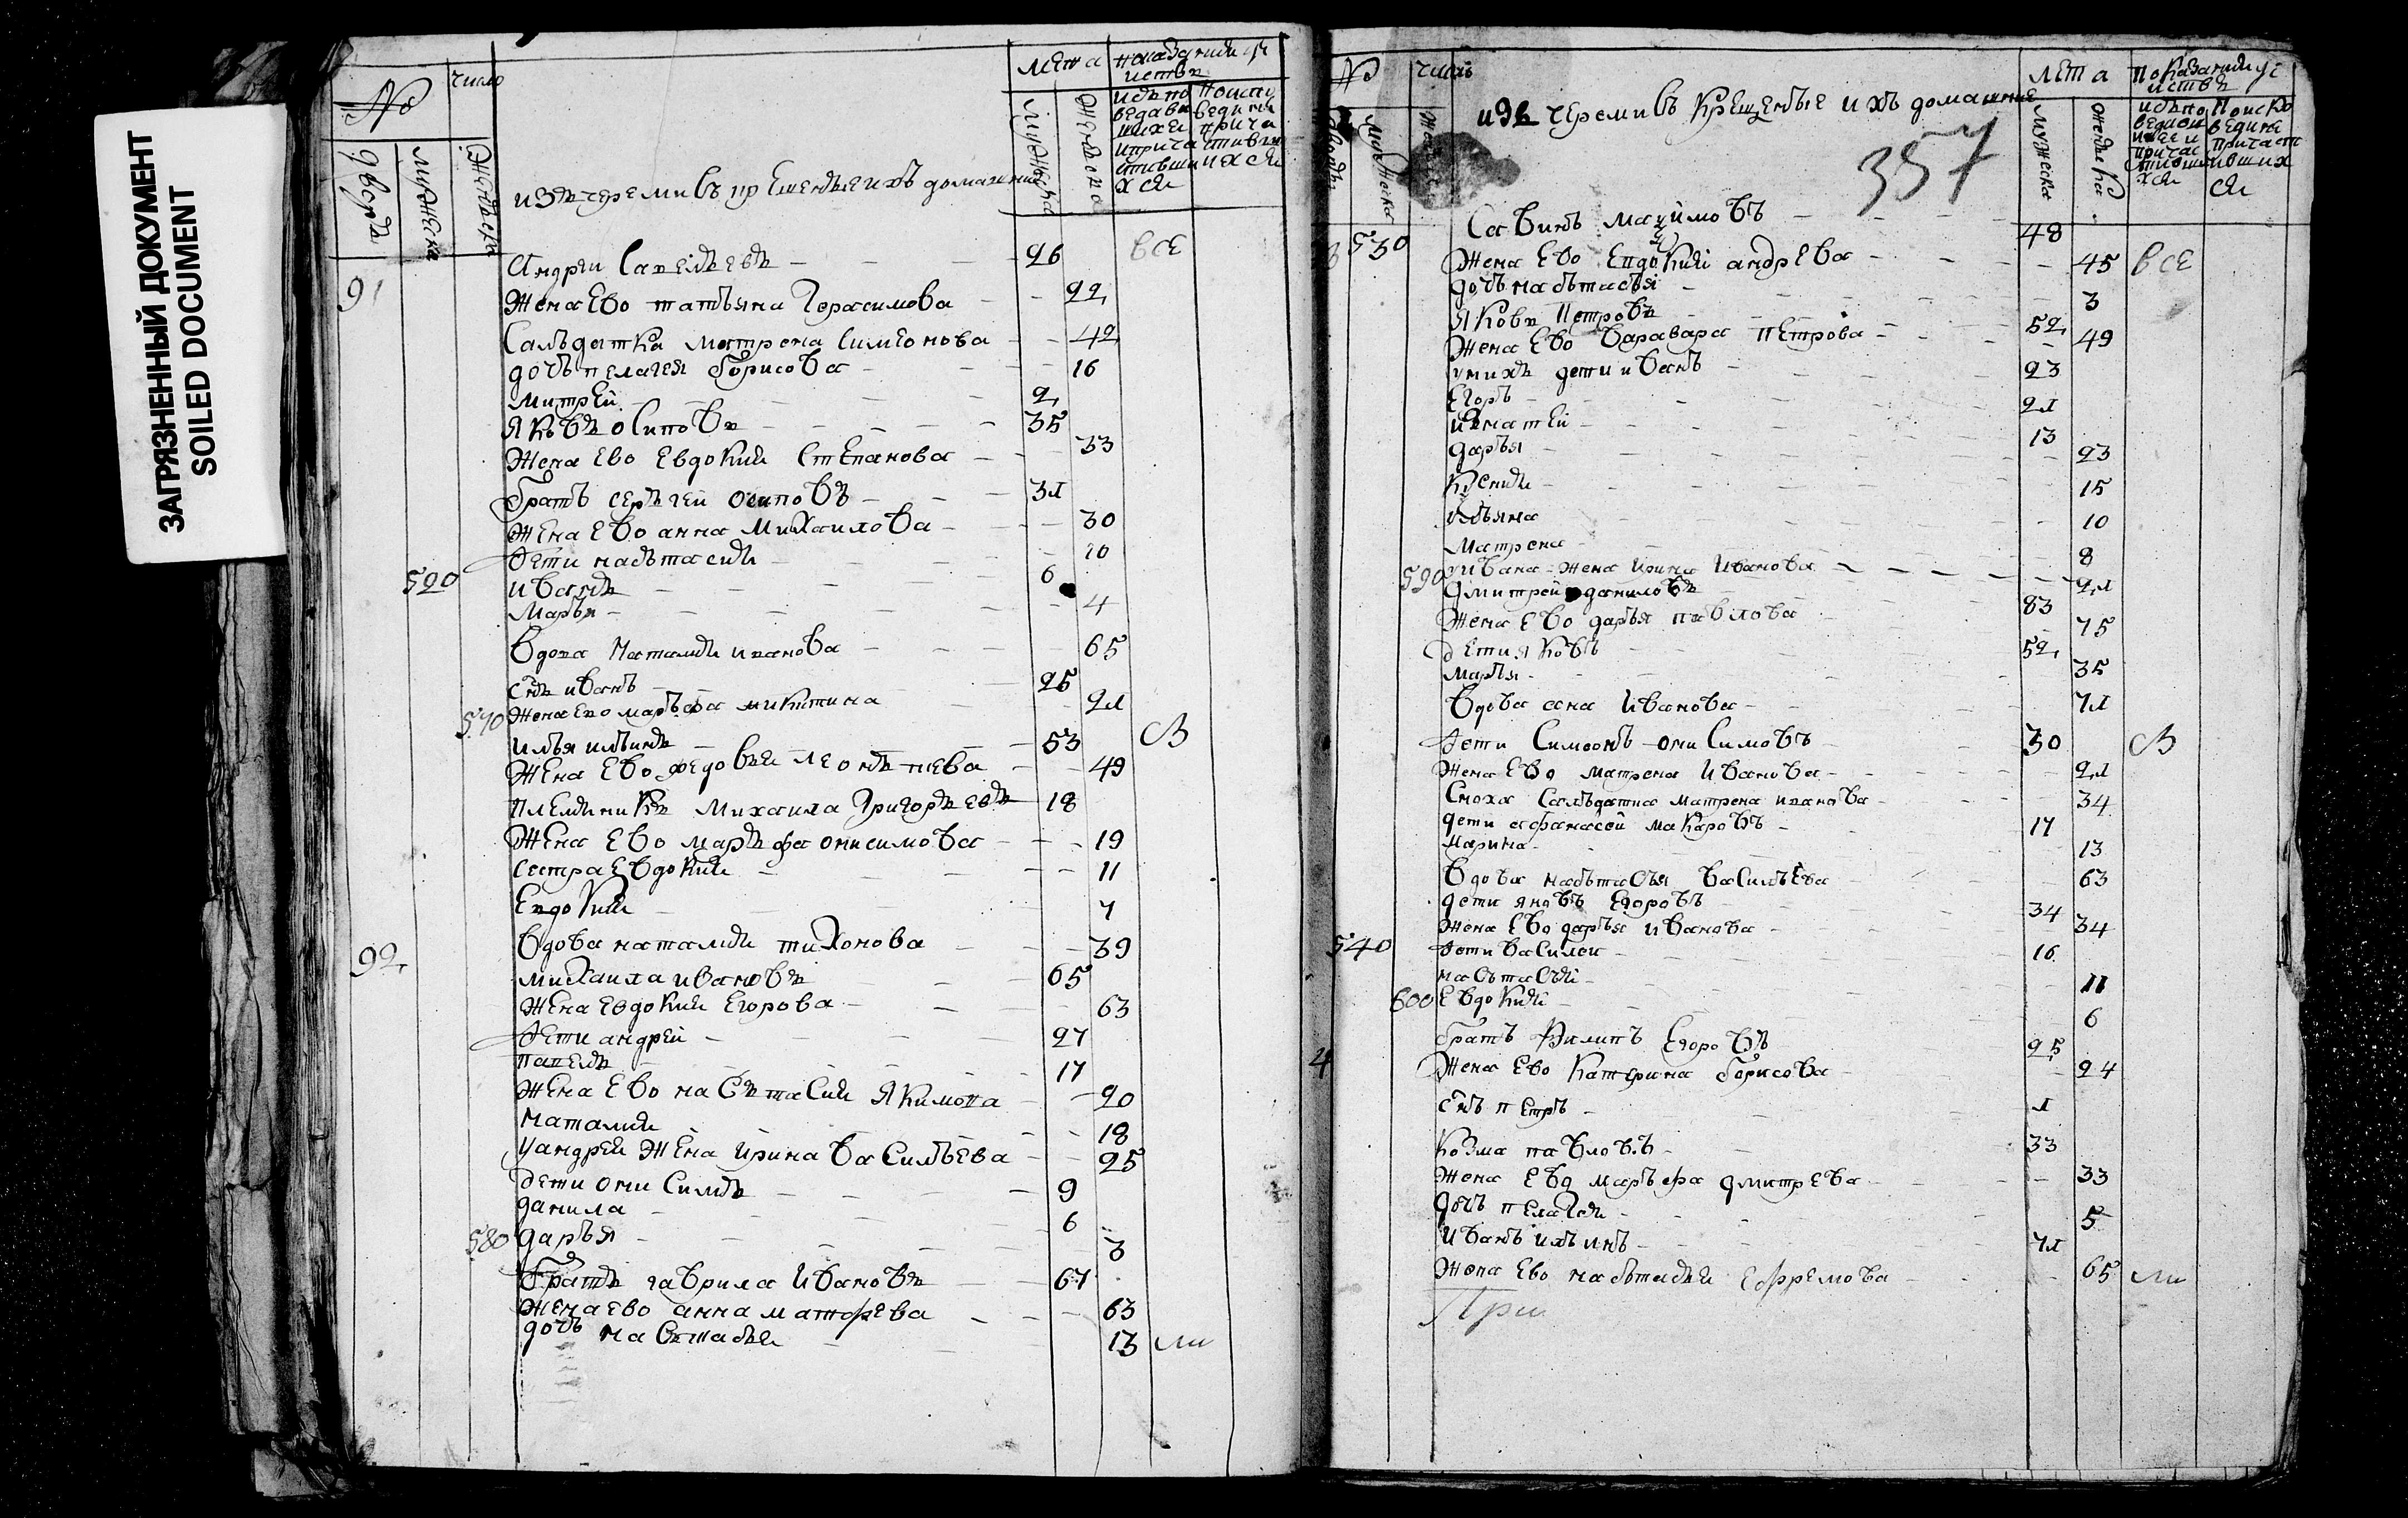 ЗАГРЯЗНЕННЫЙ ДОКУМЕНТ
SOILED DOCUMENT
№ число лета
дворъ мужеска женска
изъ черемивъ крещеныеихъ домашние
Андреи Савельевъ 26 все
91
Жена Ево татьяна Герасимова 22
Салъдатка матрена Симионова 42
дочь пелагея борисова 16
митрей 2
яковъ осиповъ 35
жена Ево Евдокия Степанова 33
братъ сергеи осиповъ 31
жена Ево анна Михаилова 30
дети настасия 10
520 иванъ 6
марья 4
вдова Наталия иванова 65
снъ иванъ 25
570 жена ево марфа микитина 21
илья ильинъ 53
жена Ево федосья леонтиева 49
племяникъ Михаила Григорьевъ 18
Жена Ево марфа онисимова 19
сестра Евдокия 11
Евдокия 7
92 вдова наталия тихонова 39
михаила ивановъ 65
жена евдокия Егорова 63
дети андрей 27
павелъ 17
жена Ево настасия Якимова 20
наталия 18
уандрея жена ирина васильева 25
дети онисимъ 9
данила 6
580 дарья 3
братъ гаврила ивановъ 67
жена ево анна матфеева 63
дочь настасья 13
№ число лета
изъ черемивъ крещеные ихъ домашние
357
530 Савинъ максимовъ 48
жена Ево Евдокия андреева 45 все
дочь настасья 3
яковъ Петровъ 52
жена Ево варавара петрова 49
унихъ дети иванъ 23
Егоръ 21
игнатей 13
дарья 23
Ксения 15
Ульяна 10
матрена 8
590 уивана жена ирина иванова 21
дмитрей даниловъ 83
жена Ево дарья павлова 75
дети яковъ 52
марья 35
вдова ана иванова 71
дети Симионъ онисимовъ 30
жена Ево матрена иванова 21
сноха салъдатка матрена иванова 34
дети афанасей макаровъ 17
марина 13
вдова настасья васильева 63
дети яковъ Егоровъ 34
жена Ево дарья иванова 34
540 дети василеи 16
настасья 11
600 Евдокия 6
братъ Филипъ Егоровъ 25
жена Ево катерина борисова 24
снъ петръ 1
козма павловъ 33
жена Ево марфа дмитрева 33
дочь пелагея 5
иванъ ильинъ 71
жена Ево настасья Ефремова 65
При